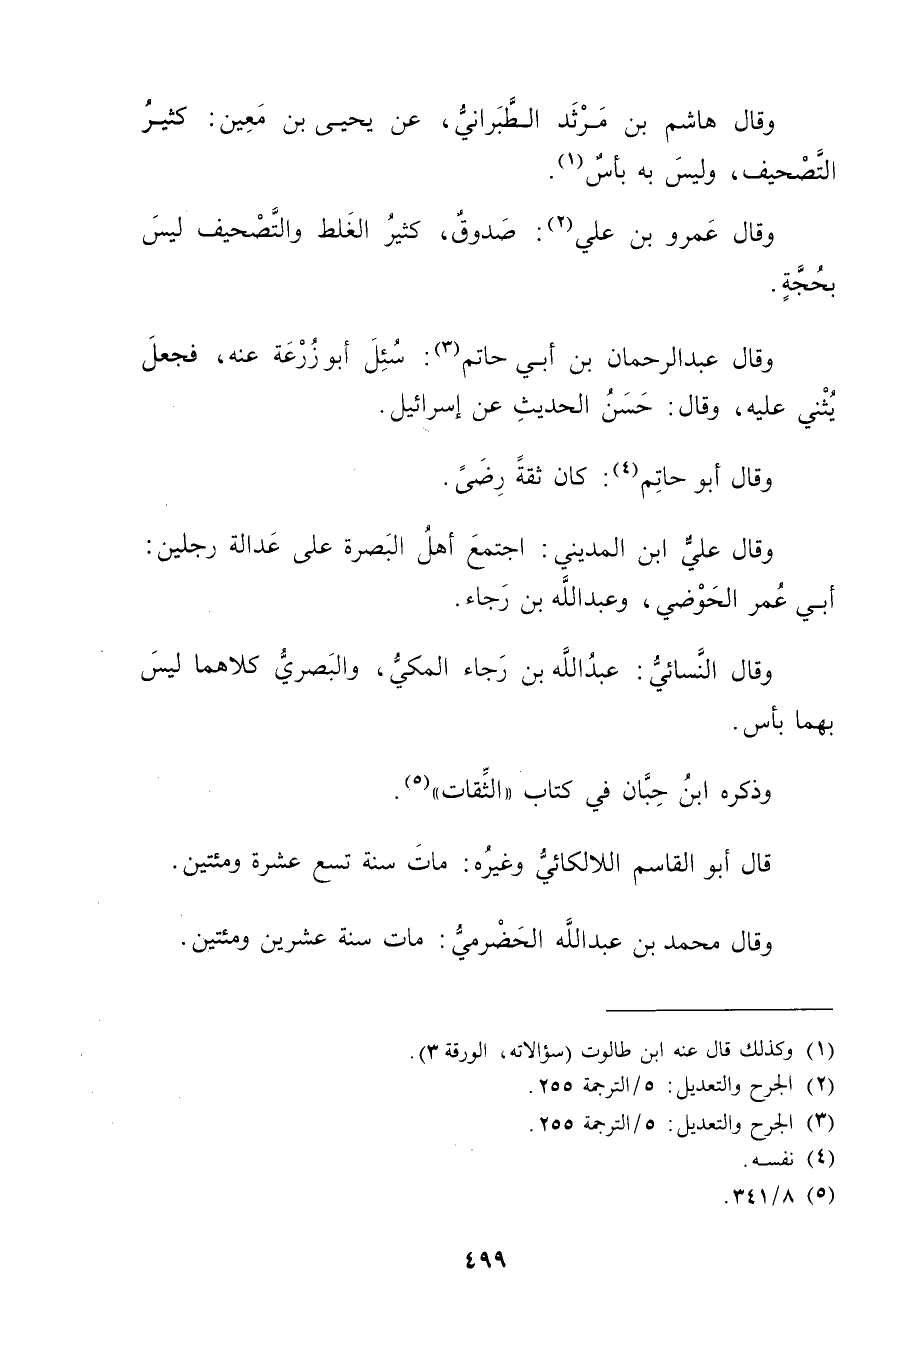 وقال هاشم بن مَـرْثَد الـطَّبَرانيُّ، عن يحيـى بن مَعِين: كثيـرُ
التَّصْحيف، وليسَ به بأسٌ(١).
وقال عَمرو بن علي(٢): صَدوقٌ، كثيرُ الغَلط والتَّصْحيف ليسَ
بحُجَّةٍ.
وقال عبدالرحمان بن أبـي حاتم(٣): سُئِلَ أبو زُرْعَة عنه، فجعلَ
يُثْني عليه، وقال: حَسَنُ الحديثِ عن إسرائيل.
وقال أبو حاتِم(٤): كان ثقةً رِضَىً.
وقال عليٌّ ابن المديني: اجتمعَ أهلُ البَصرة على عَدالة رجلين:
أبـي عُمر الحَوْضي، وعبداللَّه بن رَجاء.
وقال النَّسائيُّ: عبدُاللَّه بن رَجاء المكيُّ، والبَصريُّ كلاهما ليسَ
بهما بأس.
وذكره ابنُ حِبَّان في كتاب «الثِّقات»(٥).
قال أبو القاسم اللالكائيُّ وغيرُه: ماتَ سنة تسع عشرة ومئتين.
وقال محمد بن عبداللَّه الحَضْرميُّ: مات سنة عشرين ومئتين.
(١) وكذلك قال عنه ابن طالوت (سؤالاته، الورقة ٣).
(٢) الجرح والتعديل: ٥/الترجمة ٢٥٥.
(٣) الجرح والتعديل: ٥/الترجمة ٢٥٥.
(٤) نفسه.
(٥) ٣٤١/٨.
٤٩٩